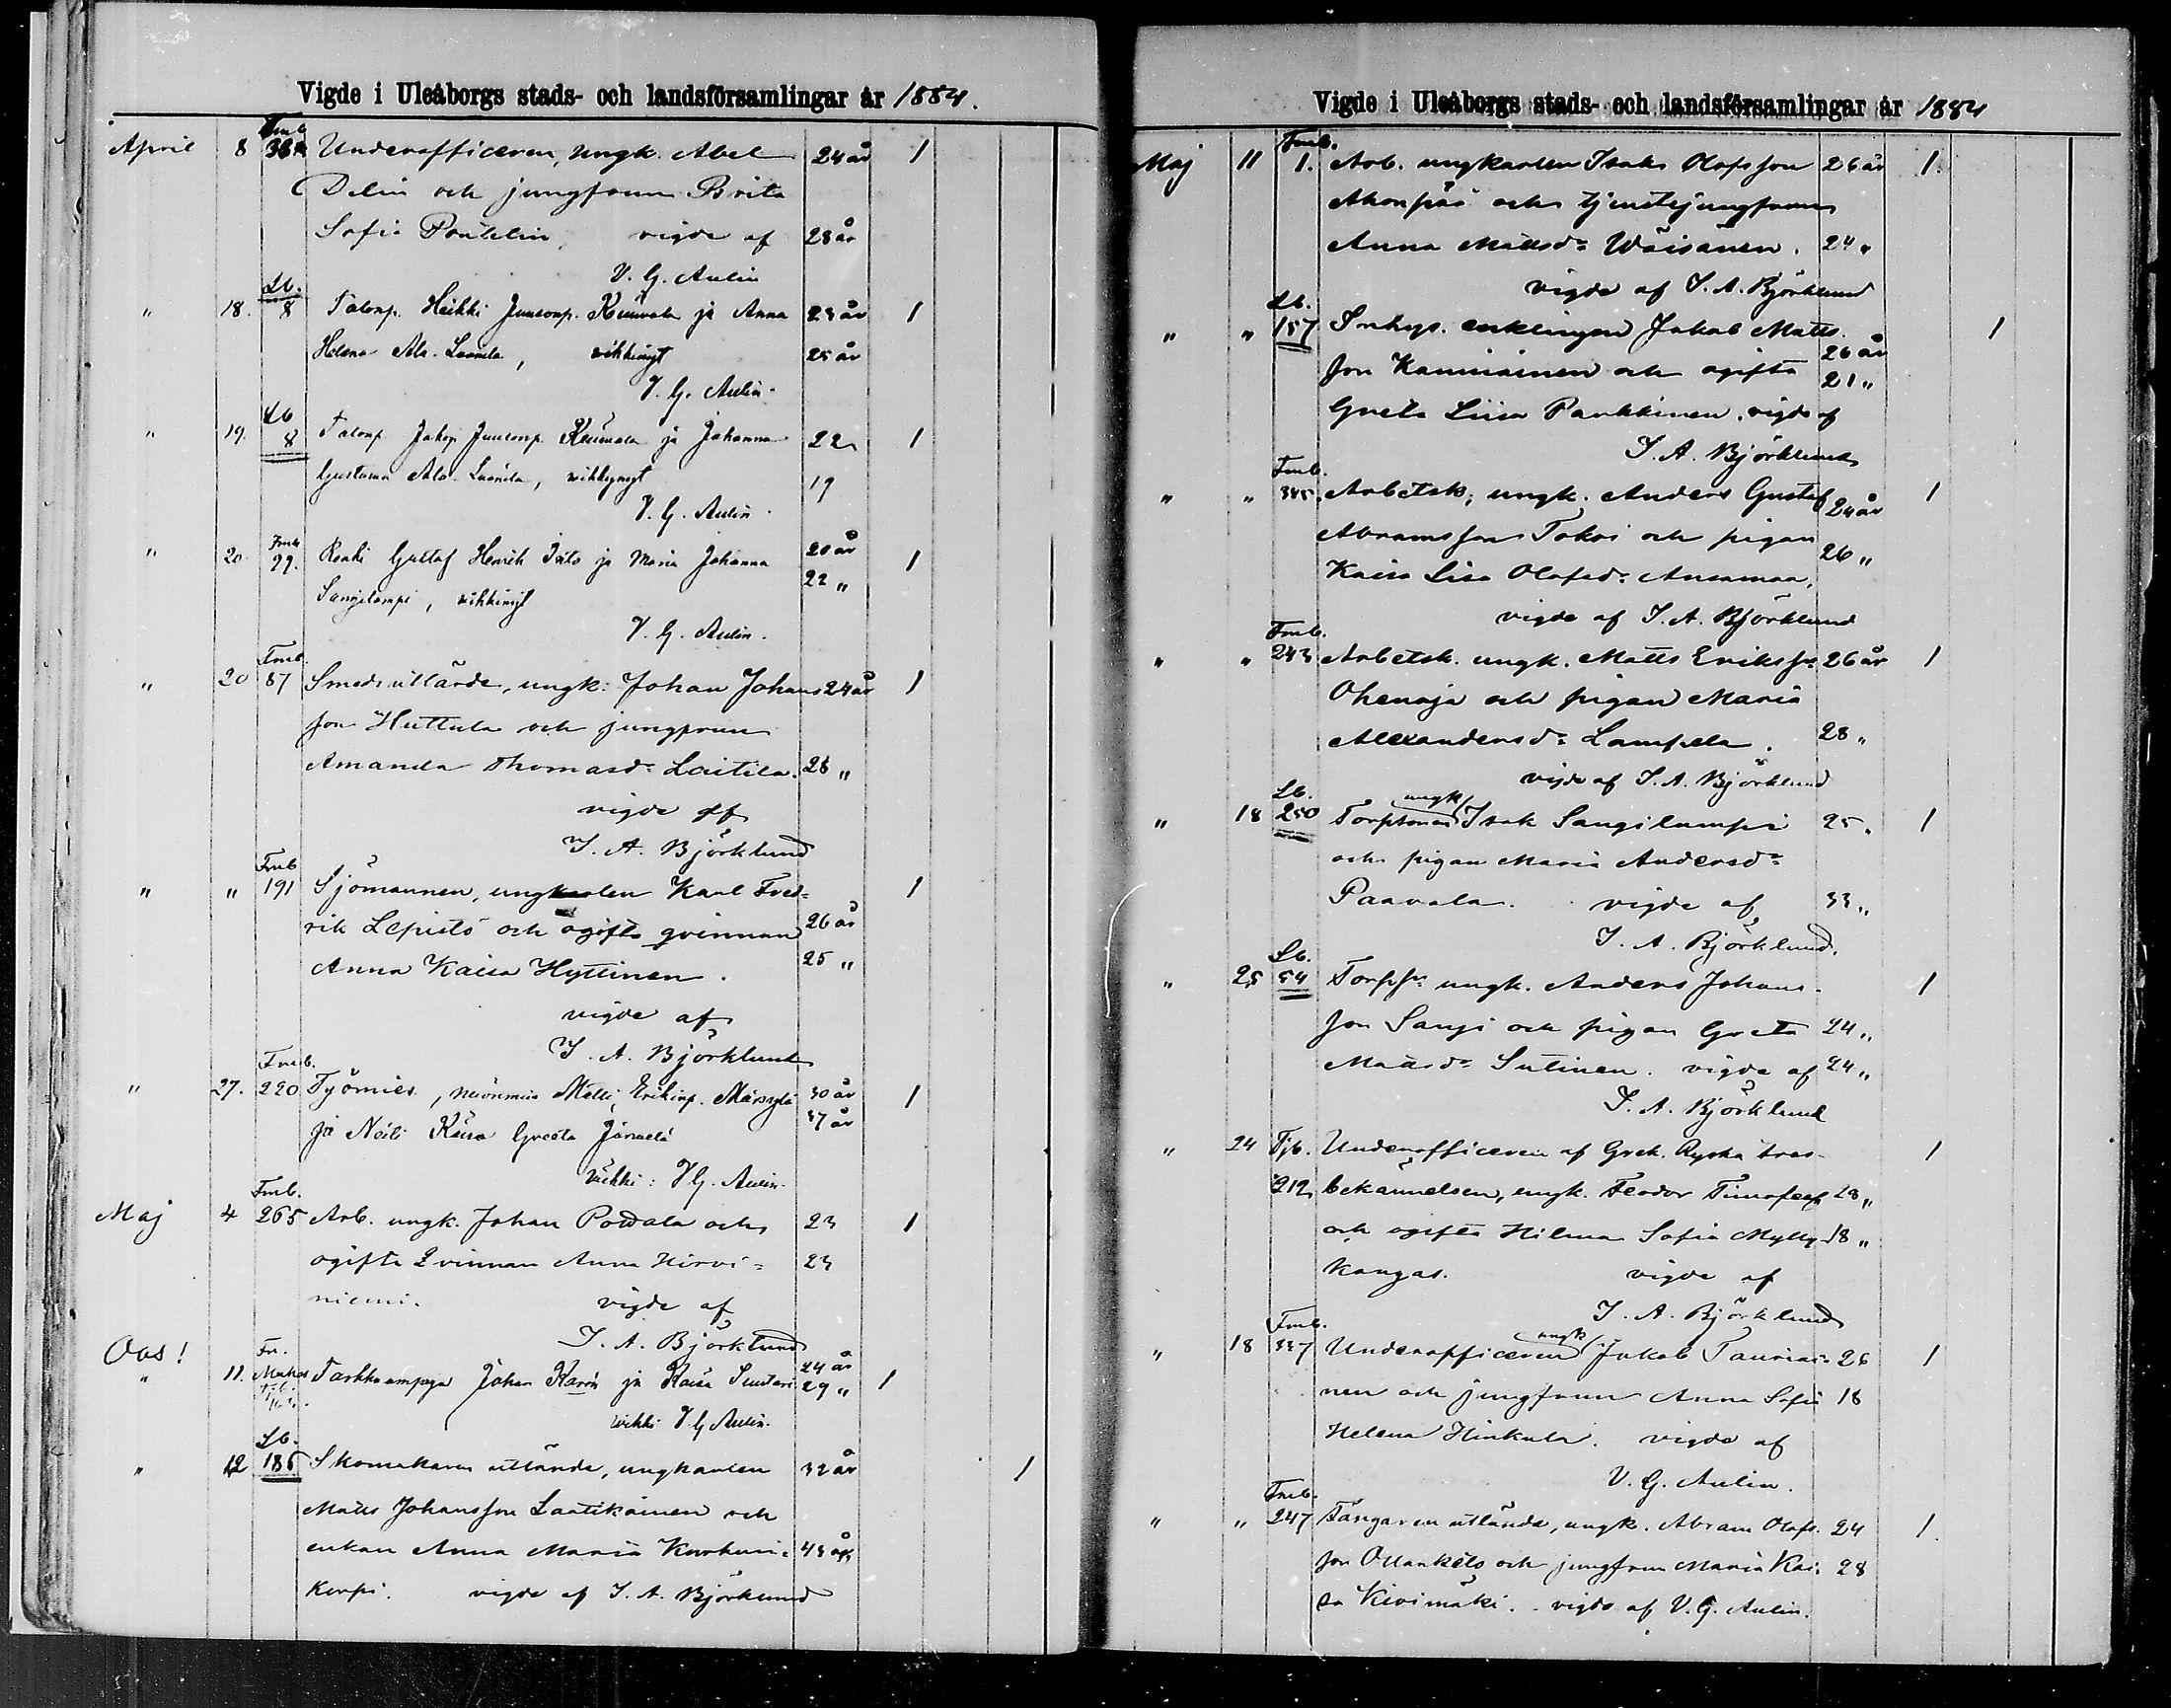 Vigde i Uleåborgs stads- och landsförsamlingar år 1884.
April 8 Fmb. Underofficeren, ungk. Abel 24 år 1
Delin och jungfrun Brita
Sofia vigde af 28 år
V. G. Aulin
" 18. Lb. 8 Talonp. Heikki Juusonp. ja Anna 23 år 1
Helena Ala-Luonila, vihkinyt 25 år
V. G. Aulin.
" 19. Lb 8 Talonp. Jakop Juusonp. ja Johanna 22 1
Gustava Ala-Luonila, vihkinyt 19
V. G. Aulin.
" 20 Fmb 29. Renki Gustaf Henrik ja Maria Johanna 20 år 1
Sangilampi, vihkinyt 22 "
V. G. Aulin.
" 20 Fmb. 87 Smeds utlärde, ungk. Johan Johans 24 år 1
son Huttula och jungfrun
Amanda Thomasd:r Laitila. 28 "
vigde af
I. A. Björklund
" " Fmb 191 Sjömannen, ungkarlen Karl Fred=
rik Lepistö och ogifta qvinnan 26 år 1
Anna Kaisa Hyttinen. 25 "
vigde af
I. A. Björklund
" 27. Fmb. 220 Työmies, nuorimies Matti Erikinp. 30 år 1
ja Neiti Kaisa Greeta 37 år
Vihki: V. G. Aulin.
Maj 4 Fmb. 265 Arb. ungk. Johan och 23 1
ogifta Qvinnan Anna Hirvi= 23
niemi. vigde af
I. A. Björklund
Obs!
" 11. Fr. Muhos Johan ja Kaisa 24 år 29 " 1
vihki V. G. Aulin.
" 12 Lb. 186 Skomakaren utlärde, ungkarlen 32 år 1
Matts Johansson Laatikainen och
enkan Anna Maria Korhuri= 43 år
korpi. vigde af I. A. Björklund
Vigde i Uleåborgs stads- och landsförsamlingar år 1884
Maj 11 Fmb. 1. Arb. ungkarlen Isak Olofsson 26 år 1.
Ahonpää och tjenstejungfrun
Anna Mattsd:r Wäisänen. 24 "
vigde af I. A. Björklund
" " Lb. 157 Inhys. enklingen Jakob Matts- 1
son och ogifta 26 år
Greta Liisa Parkkinen. vigde af 21 "
I. A. Björklund
" " Fmb. 345. Arbetsk. ungk. Anders Gustaf 1
Abramsson Tokoi och pigan 24 år
Kaisa Lisa Olofsd:r Ansamaa, 26 "
vigde af I. A. Björklund
" " Fmb. 243 Arbetsk. ungk. Matts Eriksson 26 år 1
Ohenoja och pigan Maria
Alexandersd:r Lampela. 28 "
vigde af I. A. Björklund
" 18 Lb. 250 ungk Isak Sangilampi 25 " 1
och pigan Maria Andersd:r
Paavola. vigde af 33 "
I. A. Björklund.
" 25 Lb. 54 ungk. Anders Johans- 1
son Sangi och pigan Greta 24 "
Mattsd:r Sutinen. vigde af 24 "
I. A. Björklund
" 24 Tjb. 212 Underofficeren af Grek. Ryska tros- 1
bekännelsen, ungk. Feodor Timofeeff 28 "
och ogifta Hilma Sofia Mylly- 18 "
kangas. vigde af
I. A. Björklund
" 18 Fmb. 337 Underofficeren ungk Jakob Tauriai- 26 1
nen och jungfrun Anna Sofia 18
Helena Hinkula. vigde af
V. G. Aulin.
" " Fmb. 247 utlärde, ungk. Abram Olofs- 24 1.
son och jungfrun Maria Kai- 28
sa Kivimäki. vigde af V. G. Aulin.